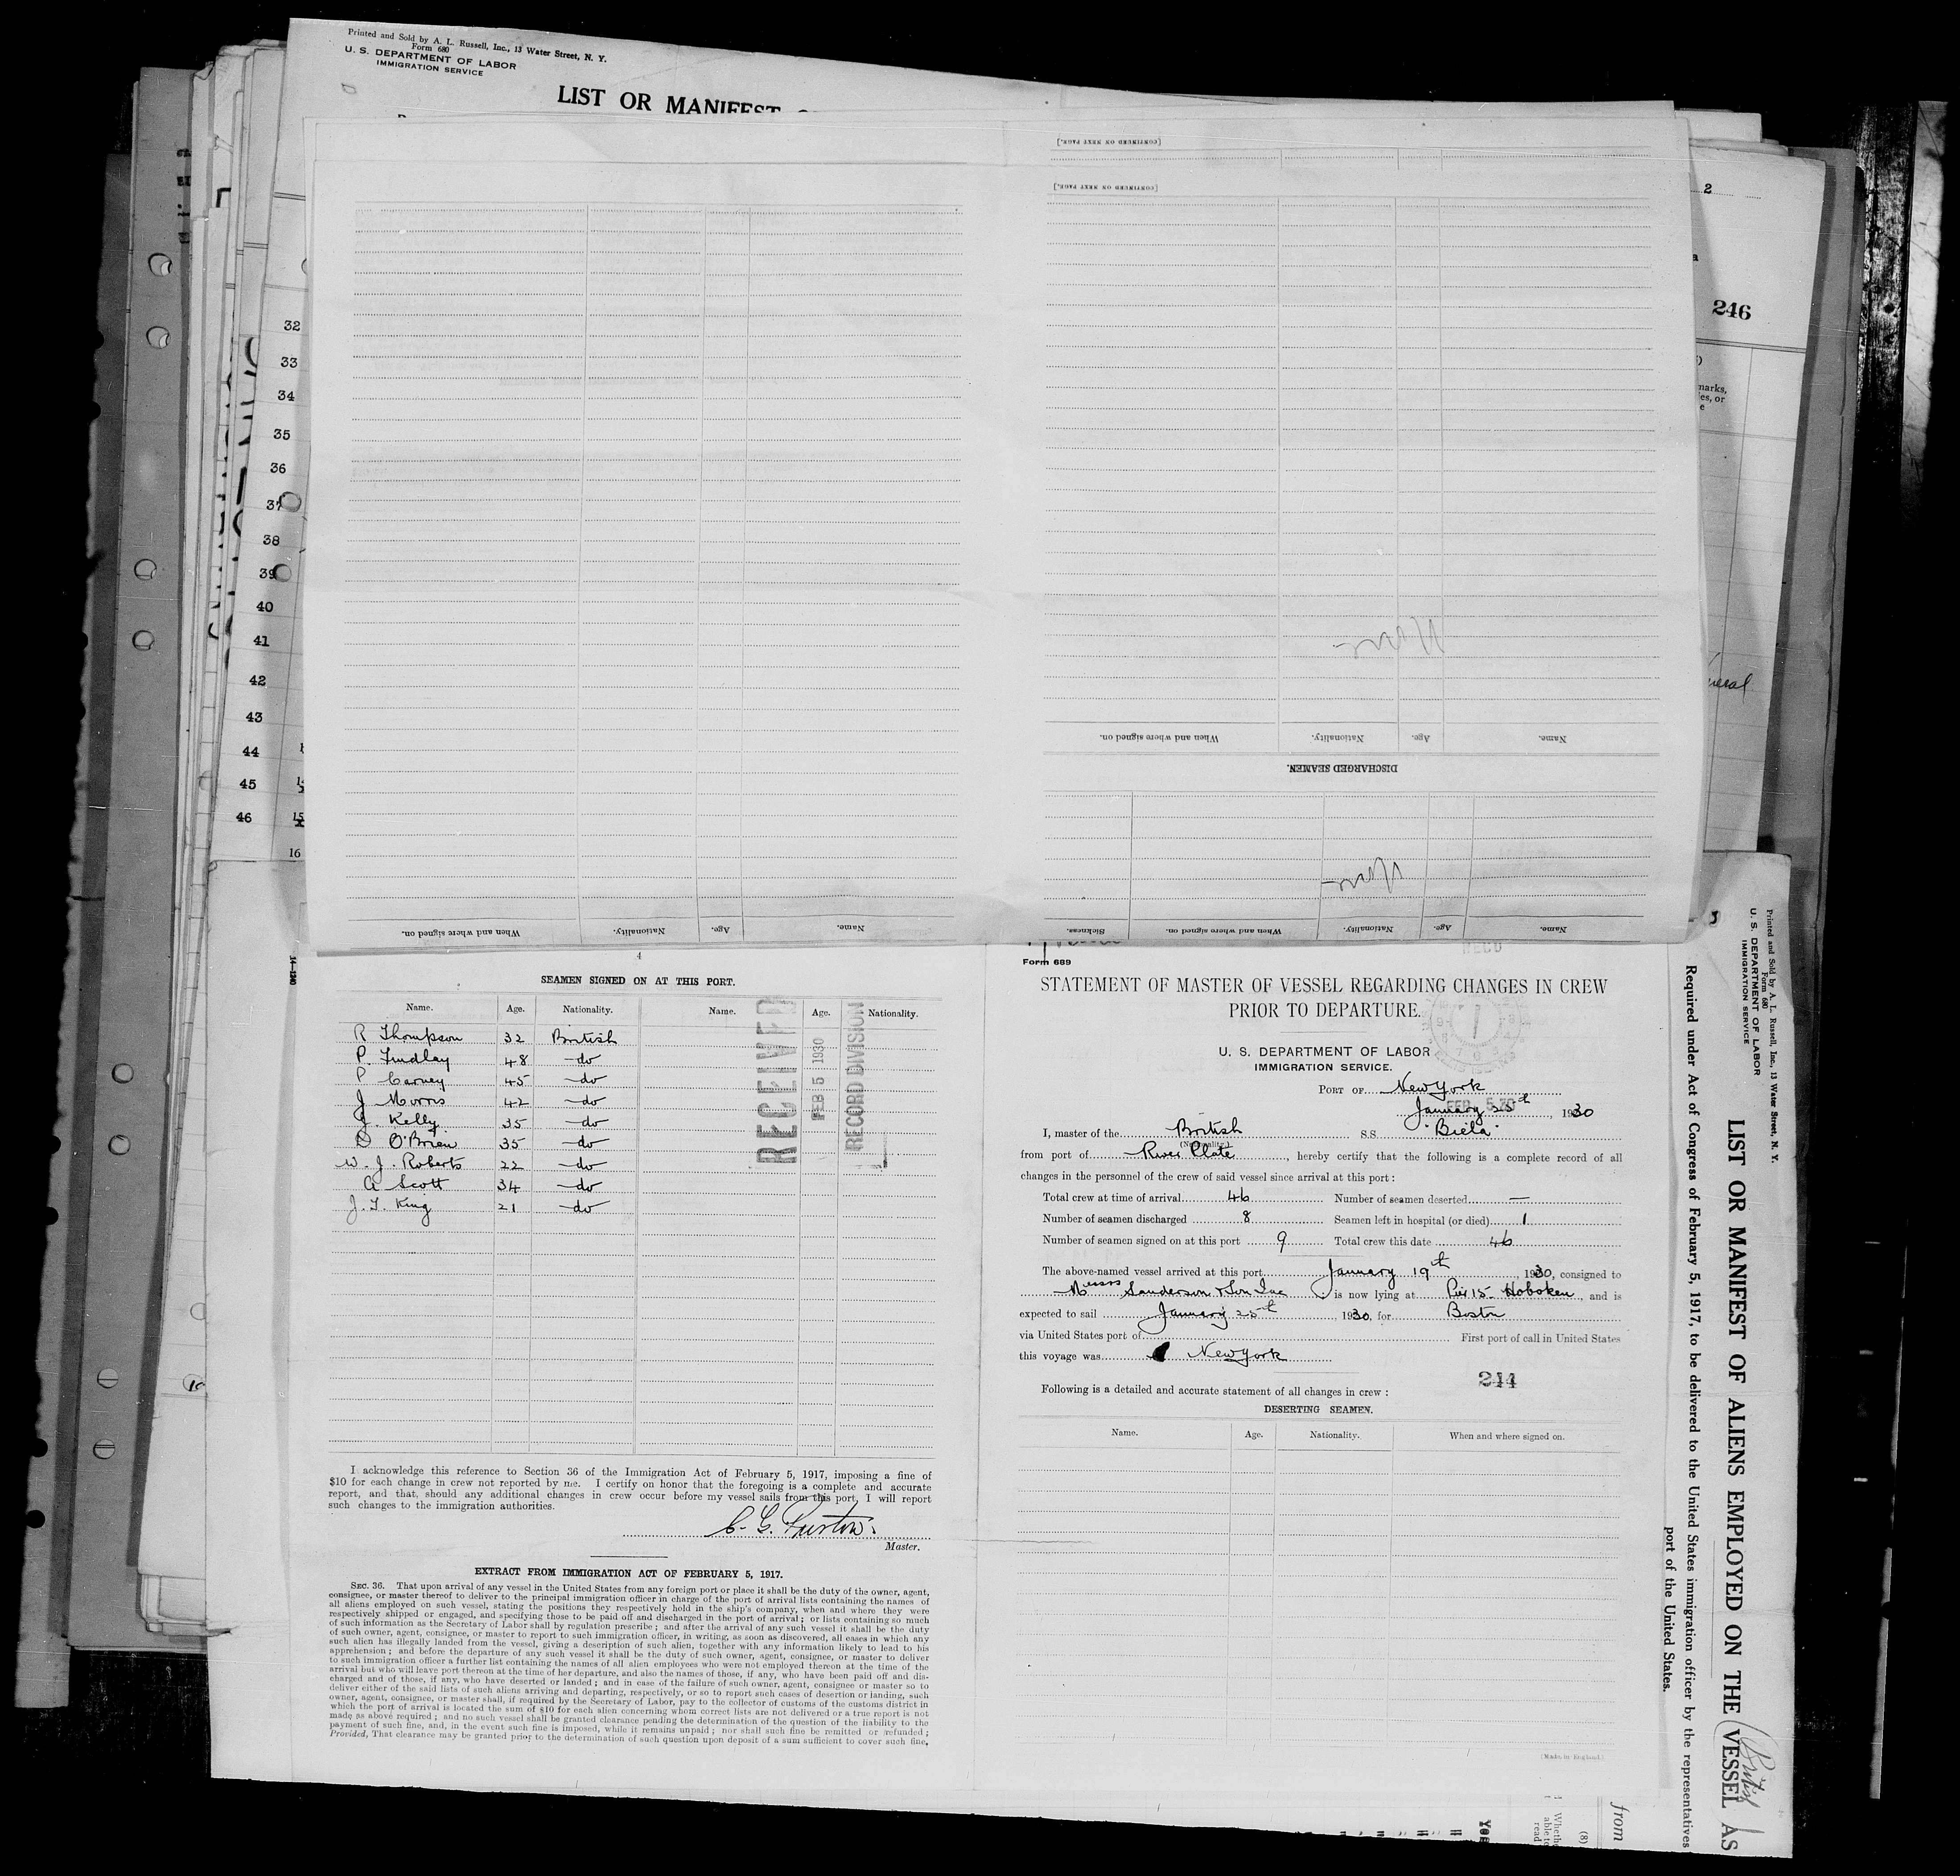 Printed and Sold by A. L. Russell, Inc., 13 Water Street, N. Y.
Form 680
U. S. DEPARTMENT OF LABOR
IMMIGRATION SERVICE
LIST OR MANIFEST
[CONTINUED ON NEXT PAGE.]
[CONTINUED ON NEXT PAGE.]
2
246
marks,
ies, or
32
33
34
35
36
37
38
39
40
41
42
43
44
45
46
15
16
When and where signed on.
Nationality.
Age.
Name.
DISCHARGED SEAMEN.
When and where signed on.
Nationality.
Age.
Name.
Sickness.
When and where signed on.
Nationality.
Age.
Name.
4
SEAMEN SIGNED ON AT THIS PORT.
Name. Age. Nationality. Name. Age. Nationality.
R Thompson 32 British
P. Findlay 48 do
P Carney 45 do
J Morris 42 do
J. Kelly 35 do
D O'Brien 35 do
W. J. Roberts 22 do
A Scott 34 do
J. T. King 21 do
RECEIVED
FEB 5 1930
RECORD DIVISION
I acknowledge this reference to Section 36 of the Immigration Act of February 5, 1917, imposing a fine of
$10 for each change in crew not reported by me. I certify on honor that the foregoing is a complete and accurate
report, and that, should any additional changes in crew occur before my vessel sails from this port, I will report
such changes to the immigration authorities.
Master.
EXTRACT FROM IMMIGRATION ACT OF FEBRUARY 5, 1917.
SEC. 36. That upon arrival of any vessel in the United States from any foreign port or place it shall be the duty of the owner, agent,
consignee, or master thereof to deliver to the principal immigration officer in charge of the port of arrival lists containing the names of
all aliens employed on such vessel, stating the positions they respectively hold in the ship's company, when and where they were
respectively shipped or engaged, and specifying those to be paid off and discharged in the port of arrival; or lists containing so much
of such information as the Secretary of Labor shall by regulation prescribe; and after the arrival of any such vessel it shall be the duty
of such owner, agent, consignee, or master to report to such immigration officer, in writing, as soon as discovered, all cases in which any
such alien has illegally landed from the vessel, giving a description of such alien, together with any information likely to lead to his
apprehension; and before the departure of any such vessel it shall be the duty of such owner, agent, consignee, or master to deliver
to such immigration officer a further list containing the names of all alien employees who were not employed thereon at the time of the
arrival but who will leave port thereon at the time of her departure, and also the names of those, if any, who have been paid off and dis-
charged and of those, if any, who have deserted or landed; and in case of the failure of such owner, agent, consignee or master so to
deliver either of the said lists of such aliens arriving and departing, respectively, or so to report such cases of desertion or landing, such
owner, agent, consignee, or master shall, if required by the Secretary of Labor, pay to the collector of customs of the customs district in
which the port of arrival is located the sum of $10 for each alien concerning whom correct lists are not delivered or a true report is not
made as above required; and no such vessel shall be granted clearance pending the determination of the question of the liability to the
payment of such fine, and, in the event such fine is imposed, while it remains unpaid; nor shall such fine be remitted or refunded;
Provided, That clearance may be granted prior to the determination of such question upon deposit of a sum sufficient to cover such fine,
Form 689
STATEMENT OF MASTER OF VESSEL REGARDING CHANGES IN CREW
PRIOR TO DEPARTURE.
U. S. DEPARTMENT OF LABOR
IMMIGRATION SERVICE.
PORT OF New York
January 25th, 1930
I, master of the British S.S. "Biela"
(Nationality.)
from port of River Plate, hereby certify that the following is a complete record of all
changes in the personnel of the crew of said vessel since arrival at this port:
Total crew at time of arrival 46 Number of seamen deserted —
Number of seamen discharged 8 Seamen left in hospital (or died) 1
Number of seamen signed on at this port 9 Total crew this date 46
The above-named vessel arrived at this port January 19th, 1930, consigned to
Messrs Sanderson & Son Inc is now lying at Pier 15 Hoboken, and is
expected to sail January 25th 1930, for Boston
via United States port of First port of call in United States
this voyage was New York
244
Following is a detailed and accurate statement of all changes in crew:
DESERTING SEAMEN.
Name. Age. Nationality. When and where signed on.
(Made in England.)
Printed and Sold by A. L. Russell, Inc., 13 Water Street, N. Y.
Form 680
U. S. DEPARTMENT OF LABOR
IMMIGRATION SERVICE
LIST OR MANIFEST OF ALIENS EMPLOYED ON THE VESSEL AS
Required under Act of Congress of February 5, 1917, to be delivered to the United States immigration officer by the representatives
port of the United States.
British
from
(8)
Yes